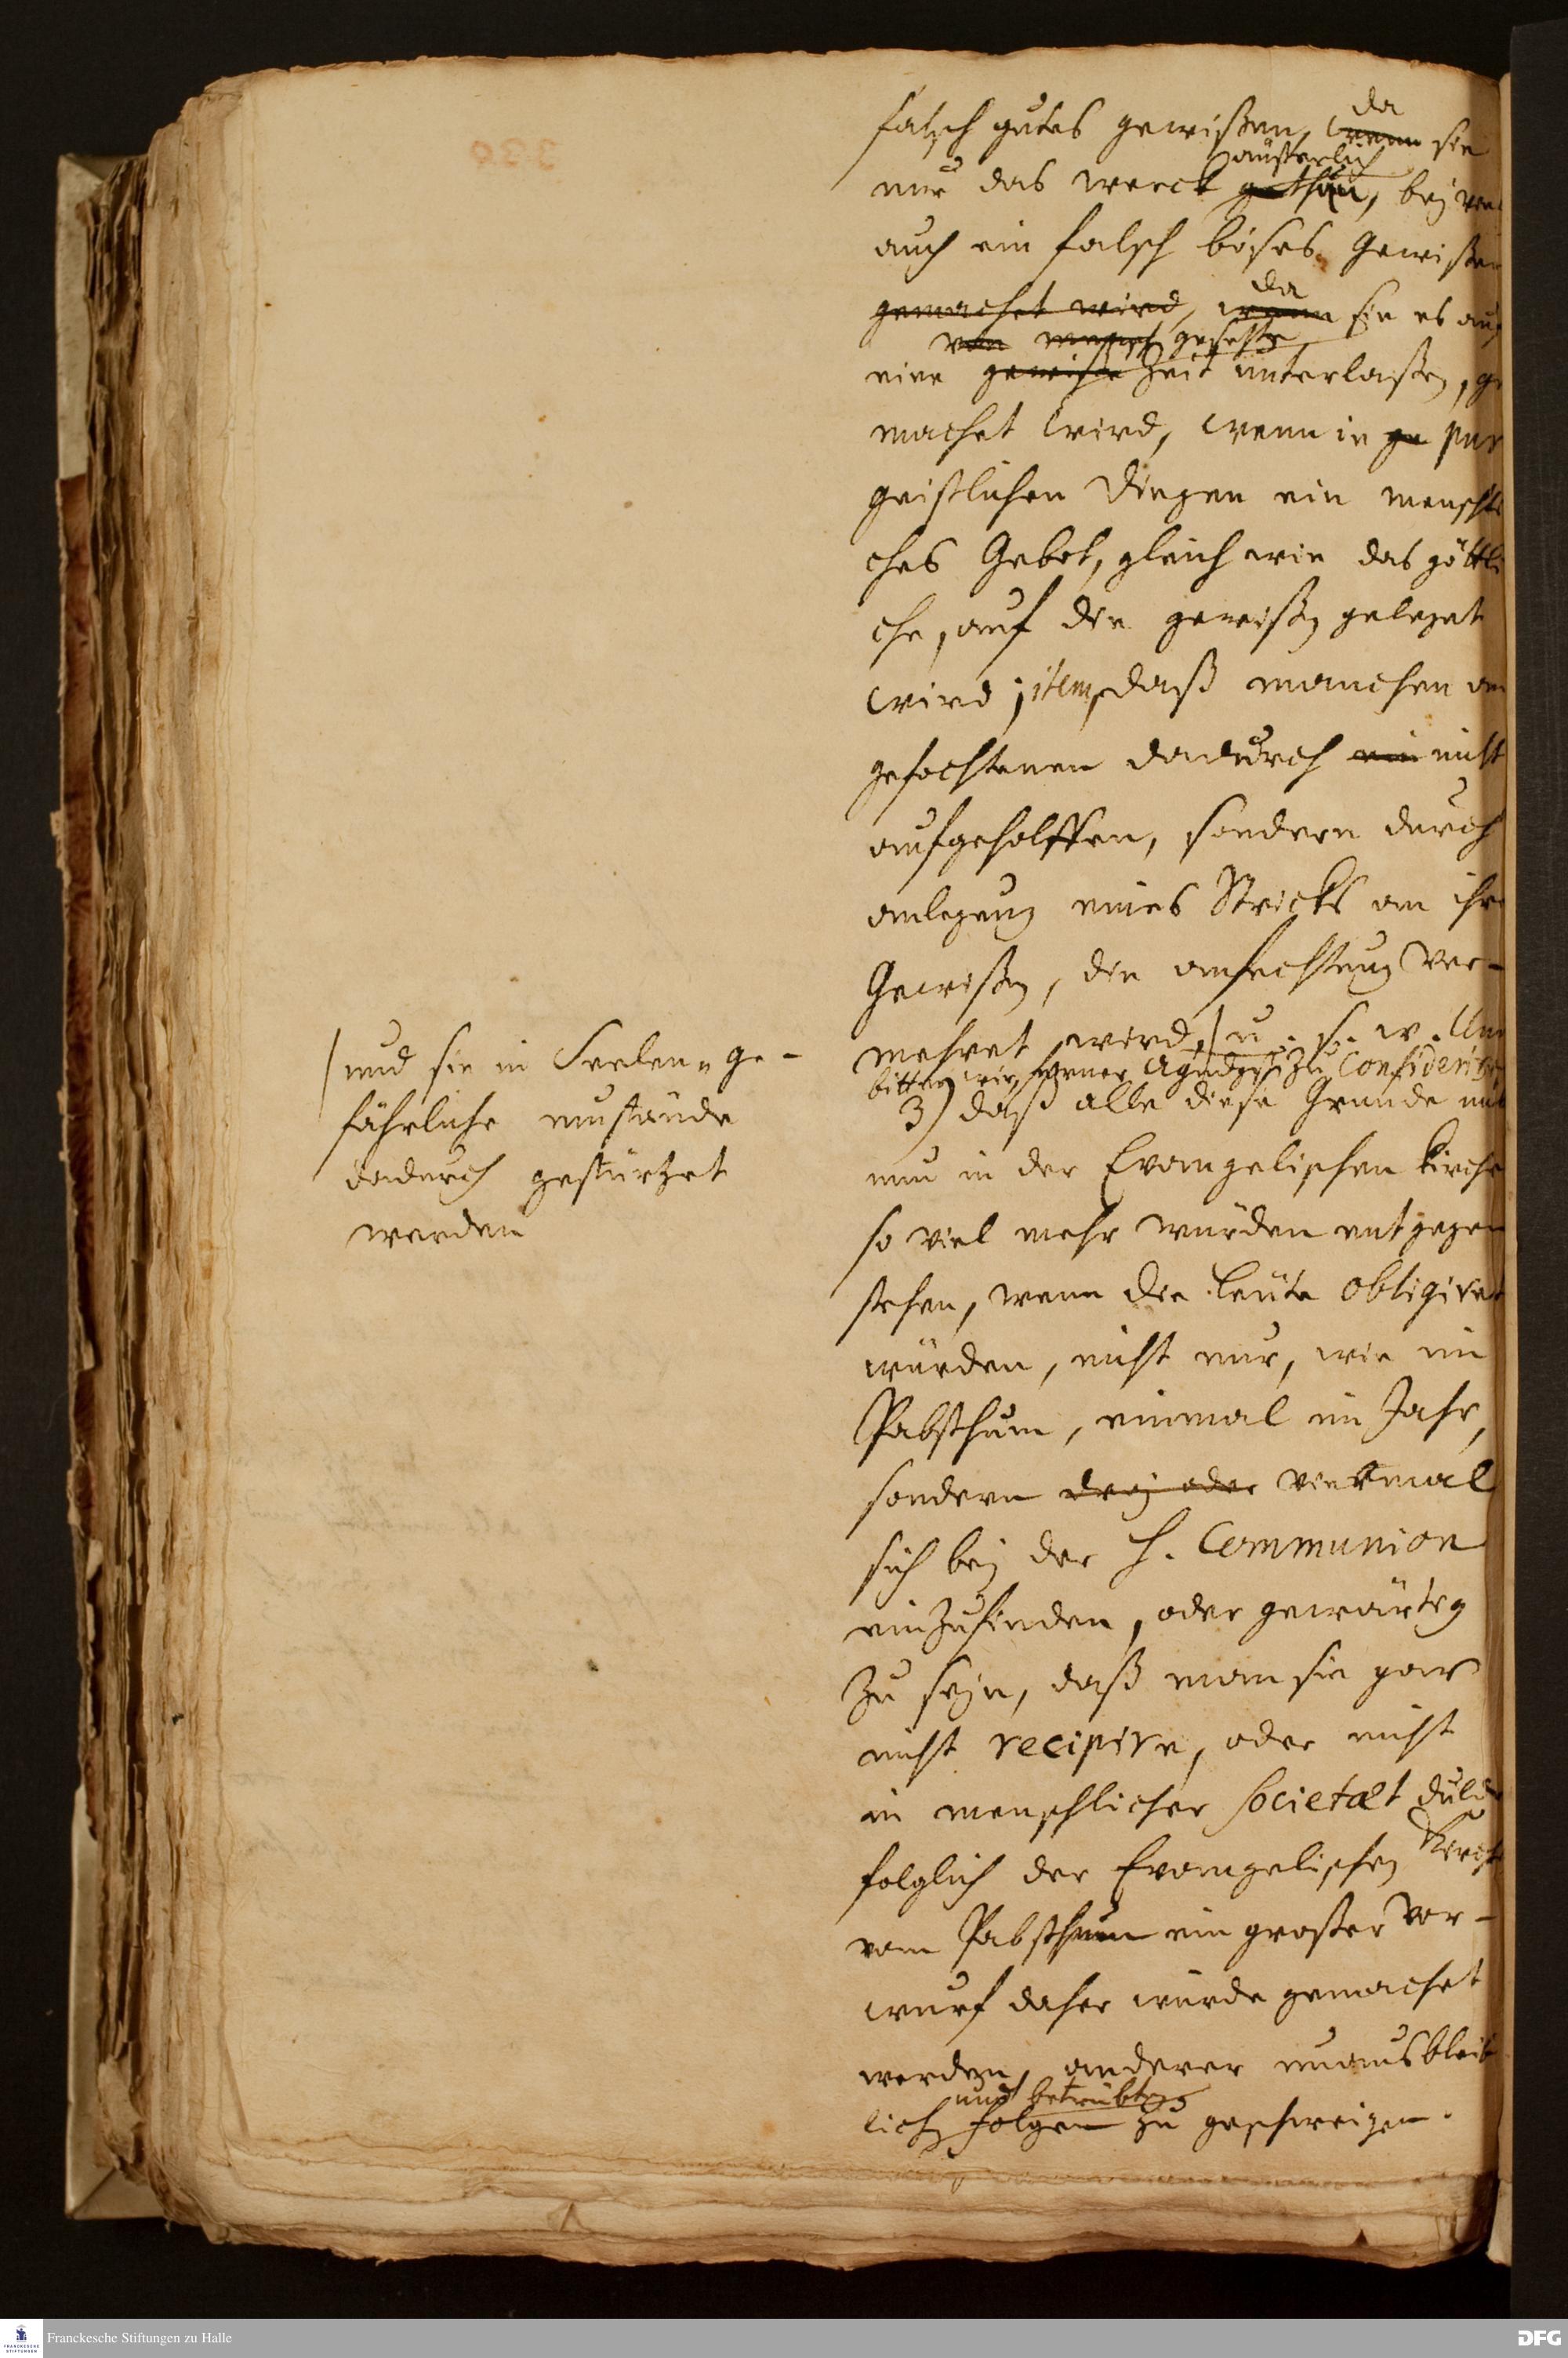 falsch gutes gewißen, wenn da sie
nur das werck äußerlich gethan, bey
auch ein falsch böses Gewißen
gemachet wird, wenn da sie es auf
von mensch gesetzte
eine gewiße Zeit unterlaßen, ge
machet wird, wenn in ge pur
geistlichen Dingen ein menschli
ches Gebot, gleich wie das göttli
che, auf die gewißen geleget
wird; item, daß manchen an
gefochtenen dadurch ein nicht
aufgeholffen, sondern durch
anlegung eines Stricks an ihr
Gewißen, die anfechtung ver-
mehret wird, / u. s. w. Un
/ und sie in Seelen-ge-
fährliche umstände
dadurch gestürtzet
werden
bitten wir ferner zu consideriren
3) daß alle diese Gründe
nun in der Evangelischen Kirche
so viel mehr würden entgegen
stehen, wenn die Leute obligiret
würden, nicht nur, wie im
Pabsthum, einmal im Jahr,
sondern drey oder viermal
sich bey der H. Communion
einzufinden, oder gewärtig
zu seyn, daß man sie gar
nicht recipire, oder nicht
in menschlicher Societaet dulde
folglich der Evangelischen Kirche
vom Pabsthum ein großer Vor-
wurf daher würde gemachet
werden, anderer unausbleib
und betrübten
lichen folgen zu geschweigen.
Franckesche Stiftungen zu Halle
DFG